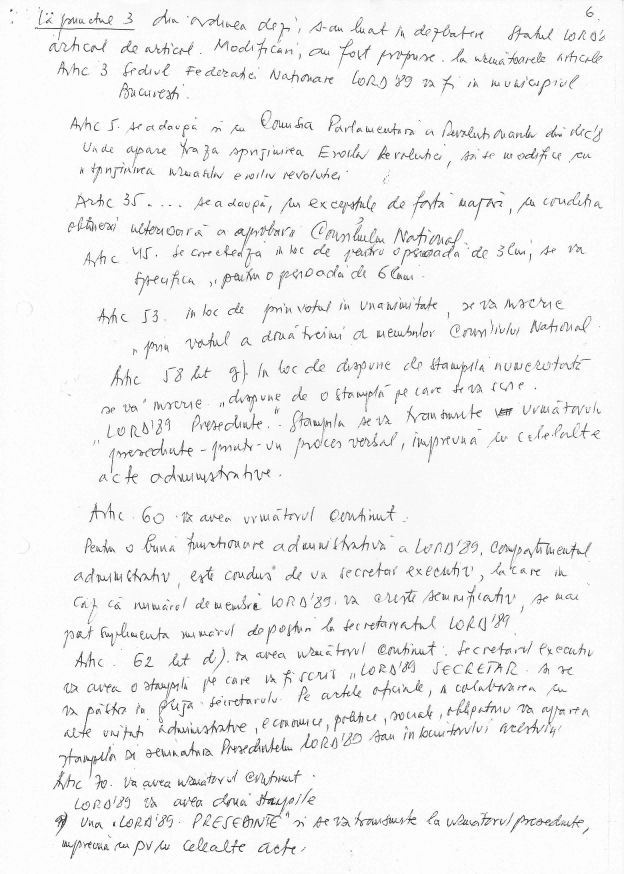 6.
La punctul 3 din ordinea de zi, s-au luat in dezbatere Statul LORD'8
articol de articol. Modificari, au fost propuse la urmatoarele articole
Artic 3 Sediul Federatiei Nationare LORD'89 va fi in municipiul
Bucuresti.
Artic 5. se adaugă si cu Comisia Parlamentară a Revolutionarilor din dec'8
Unde apare fraza sprijinirea Eroilor Revolutiei, să se modifice cu
„sprijinirea urmasilor eroilor revolutiei
Artic 35.... se adaugă, cu exceptiile de fortă majoră, cu conditia
obtinerii ulterioară a aprobării Consiliului National
Artic 45. Se corectează in loc de pentru o perioadă de 3 luni, se va
specifica „pentru o perioadă de 6 luni.
Artic 53. in loc de prin votul in unanimitate, se va inscrie
„prin votul a două treimi a membrilor Consiliului National.
Artic 58 lit g) In loc de dispune de stampilă numerotată
se va inscrie „dispune de o stampilă pe care se va scrie.
„LORD'89 Presedinte." Stampila se va transmite următorului
presedinte - printr-un proces verbal, impreună cu celelalte
acte administrative.
Artic. 60 va avea următorul continut.
Pentru o bună functionare administrativă a LORD'89, compartimentul
administrativ, este condus de un secretar executiv, la care in
caz că numărul de membri LORD'89. va creste semnificativ, se mai
pot suplimenta numărul de posturi la secretariatul LORD'89
Artic. 62 lit d). va avea următorul continut: Secretarul executiv
va avea o stampilă pe care va fi scris „LORD'89 SECRETAR si se
va păstra in grija secretarului. Pe actele oficiale, a colaborarea cu
alte unităti administrative, economice, politice, sociale, obligatoriu va apărea
stampila si semnătura Presedintelui LORD'89 sau inlocuitorului acestuia
Artic 70. va avea următorul continut.
LORD'89 va avea două stampile
Una „LORD'89. PRESEDINTE" si se va transmite la următorul presedinte,
impreună cu PV cu celelalte acte.